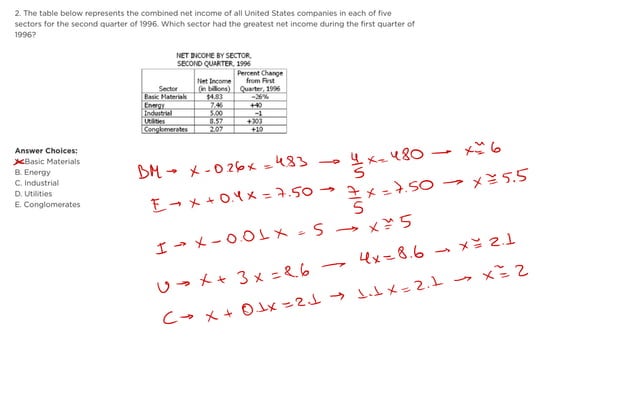 2. The table below represents the combined net income of all United States companies in each of five
sectors for the second quarter of 1996. Which sector had the greatest net income during the first quarter of
1996?
NET INCOME BY SECTOR,
SECOND QUARTER, 1996
Sector Net Income (in billions) Percent Change from First Quarter, 1996
Basic Materials $4.83 −26%
Energy 7.46 +40
Industrial 5.00 −1
Utilities 8.57 +303
Conglomerates 2.07 +10
Answer Choices:
Basic Materials
B. Energy
C. Industrial
D. Utilities
E. Conglomerates
BM → x - 0.26x = 4.83 → 4/5 x = 4.80 → x ≅ 6
E → x + 0.4x = 7.50 → 7/5 x = 7.50 → x ≅ 5.5
I → x - 0.01x = 5 → x ≅ 5
U → x + 3x = 8.6 → 4x = 8.6 → x ≅ 2.1
C → x + 0.1x = 2.1 → 1.1x = 2.1 → x ≅ 2